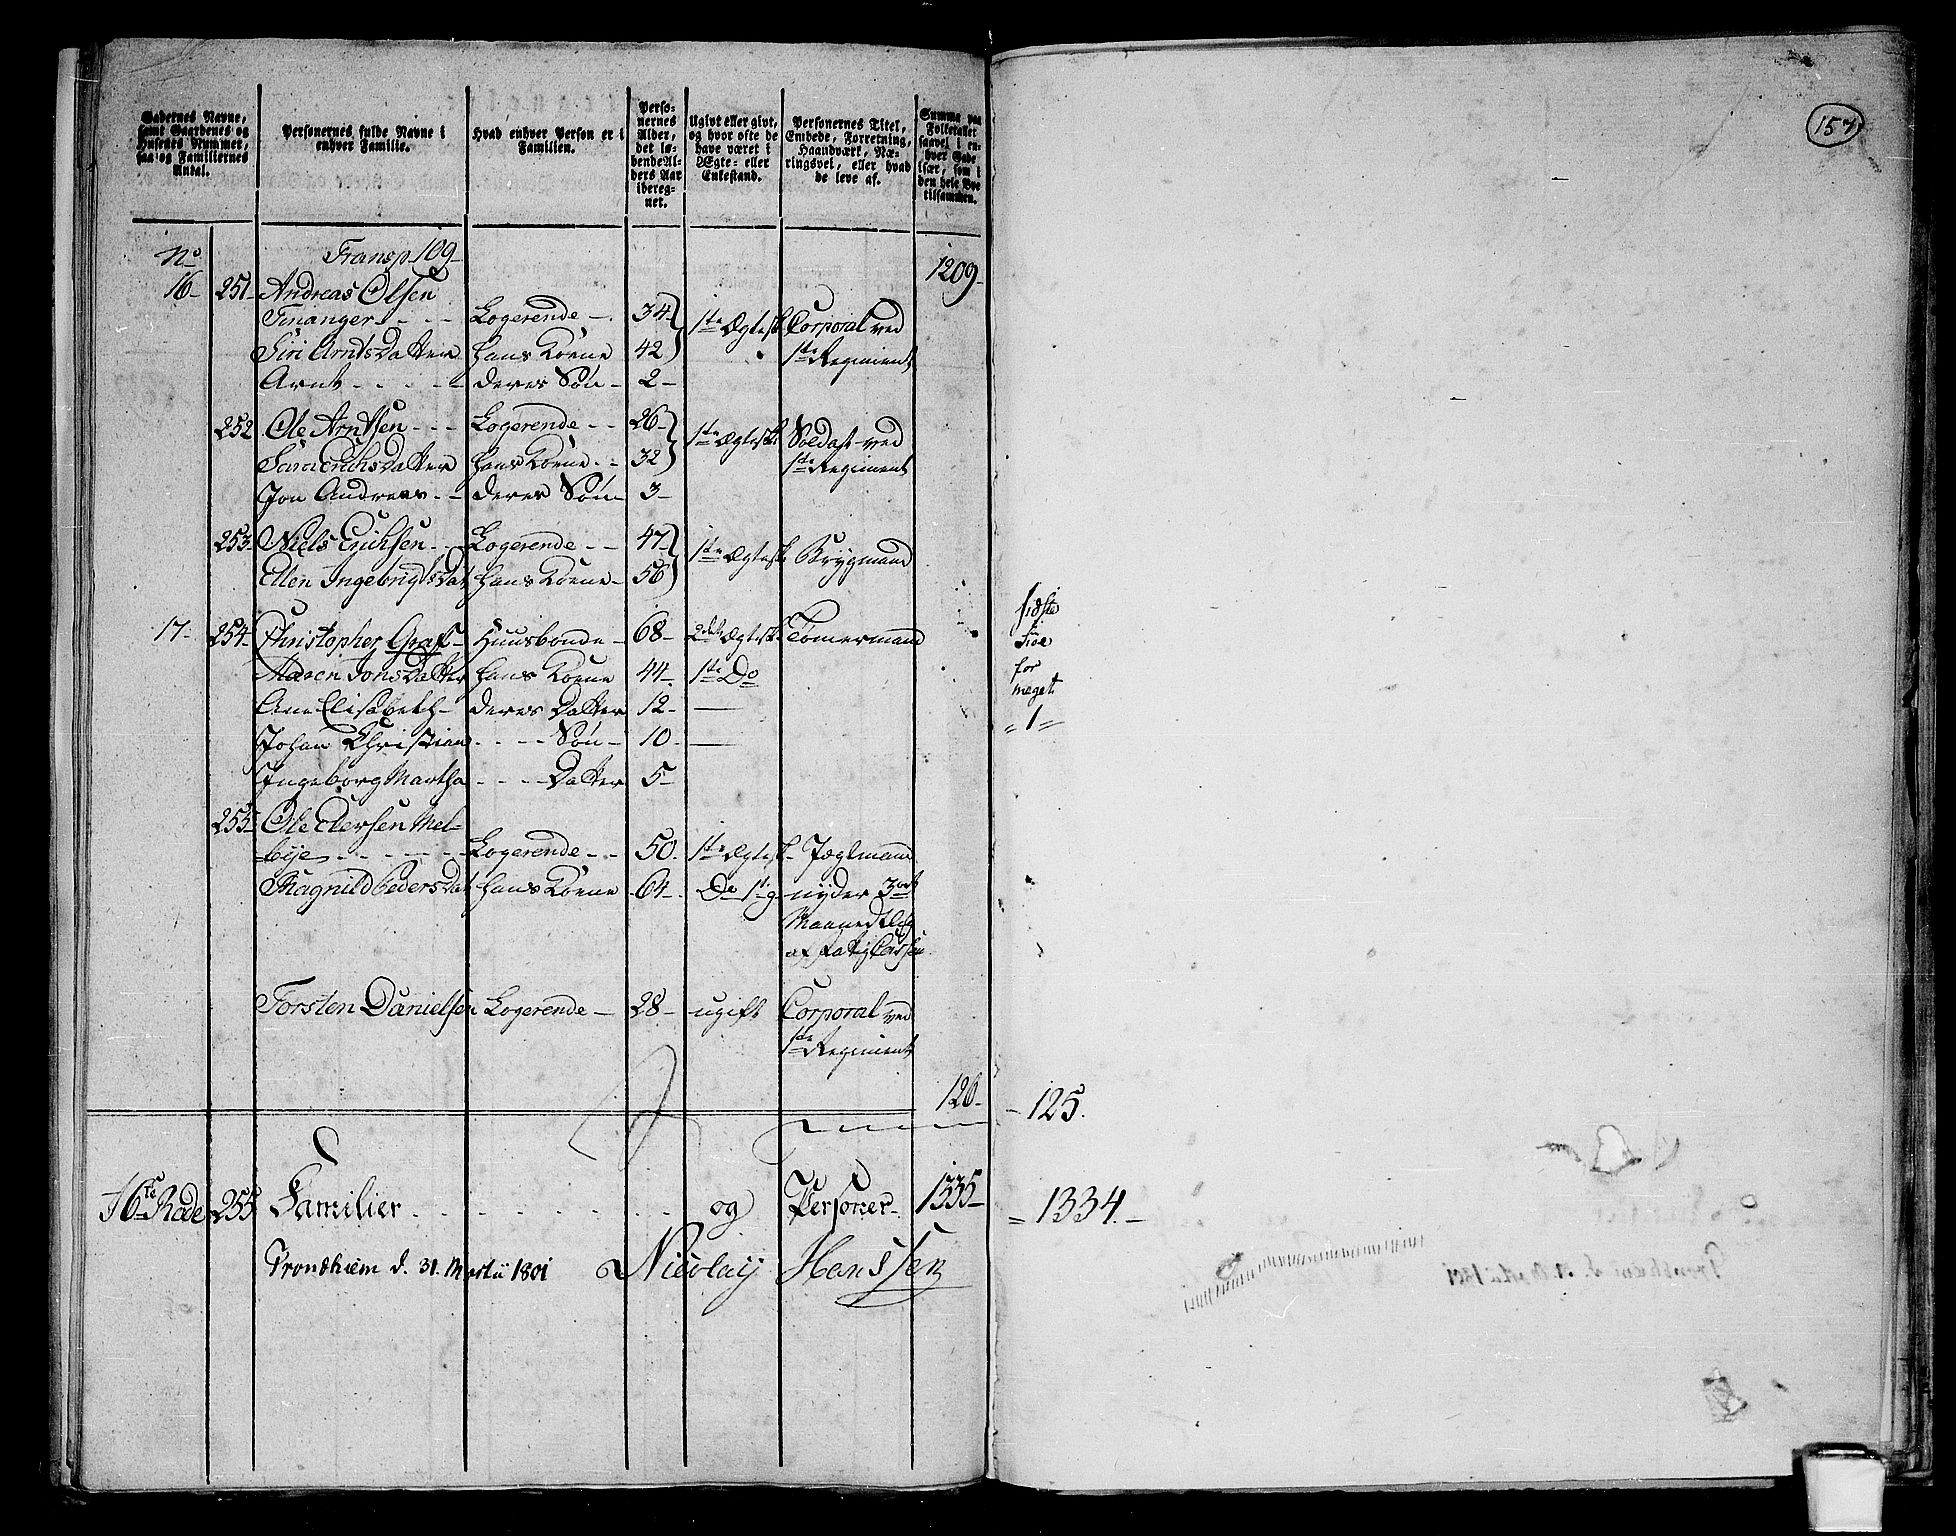 Gadernes Navne, samt Gaardenes og Husenes Nummer, saa og Familiernes Antal.
Personernes fulde Navne i enhver Familie.
Hvad enhver Person er i Familien.
Personernes Alder, det løbende Alders Aar iberegnet.
Ugivt eller givt, og hvor ofte de have været i Ægte- eller Enkestand.
Personernes Titel, Embede, Forretning, Haandværk, Næringsvei, eller hvad de leve af.
Summa paa Folketallet saavel i enhver Gade især, som i den hele Bye tilsammen.
157
No Transp. 109- 1209-
16- 251- Andreas Olsen
Finanger - - - Logerende - 34 1ste Ægtesk. Corporal ved
Siri ArntsDatter hans Kone 42 1ste Regiment
Arnt - - - - deres Søn - 2-
252 Ole Arntsen - - - Logerende - - 26- 1ste Ægtesk. Soldat ved
Sara ErichsDatter hans Kone - - 32 1ste Regiment
Jon Andreas - - deres Søn 3-
253- Niels Erichsen - - Logerende - - 47- 1ste Ægtesk. Brygmand
Elen IngebrigtsDat hans Kone - 56
17- 254- Christopher Graf- Huusbonde - 68- 2det Ægtesk. Tømermand
Maren JonsDatter hans Kone 44- 1ste Do
Ane Elisabeth - deres Datter 12- —
Johan Christian - - - Søn - 10- —
Ingeborg Martha - - - Datter 5-
255- Ole Edersen Mel-
bye - - - - - Logerende - - 50- 1ste Ægtesk- Jægtmand
Magnild PedersDat hans Kone 64- Do 1st g- nyder 3 ort
Maanedtlig
af Fattig Cassen
Torsten Danielsen Logerende - 28- ugift Corporal ved
1ste Regiment
126-
16te Rode 255 Familier - - - - - - - og Personer- 1335-
Trondhiem d. 31. Martii 1801 Nicolay Hanssen
sidste
Siee
for
meget
" 1 "
- 125.
= 1334.-